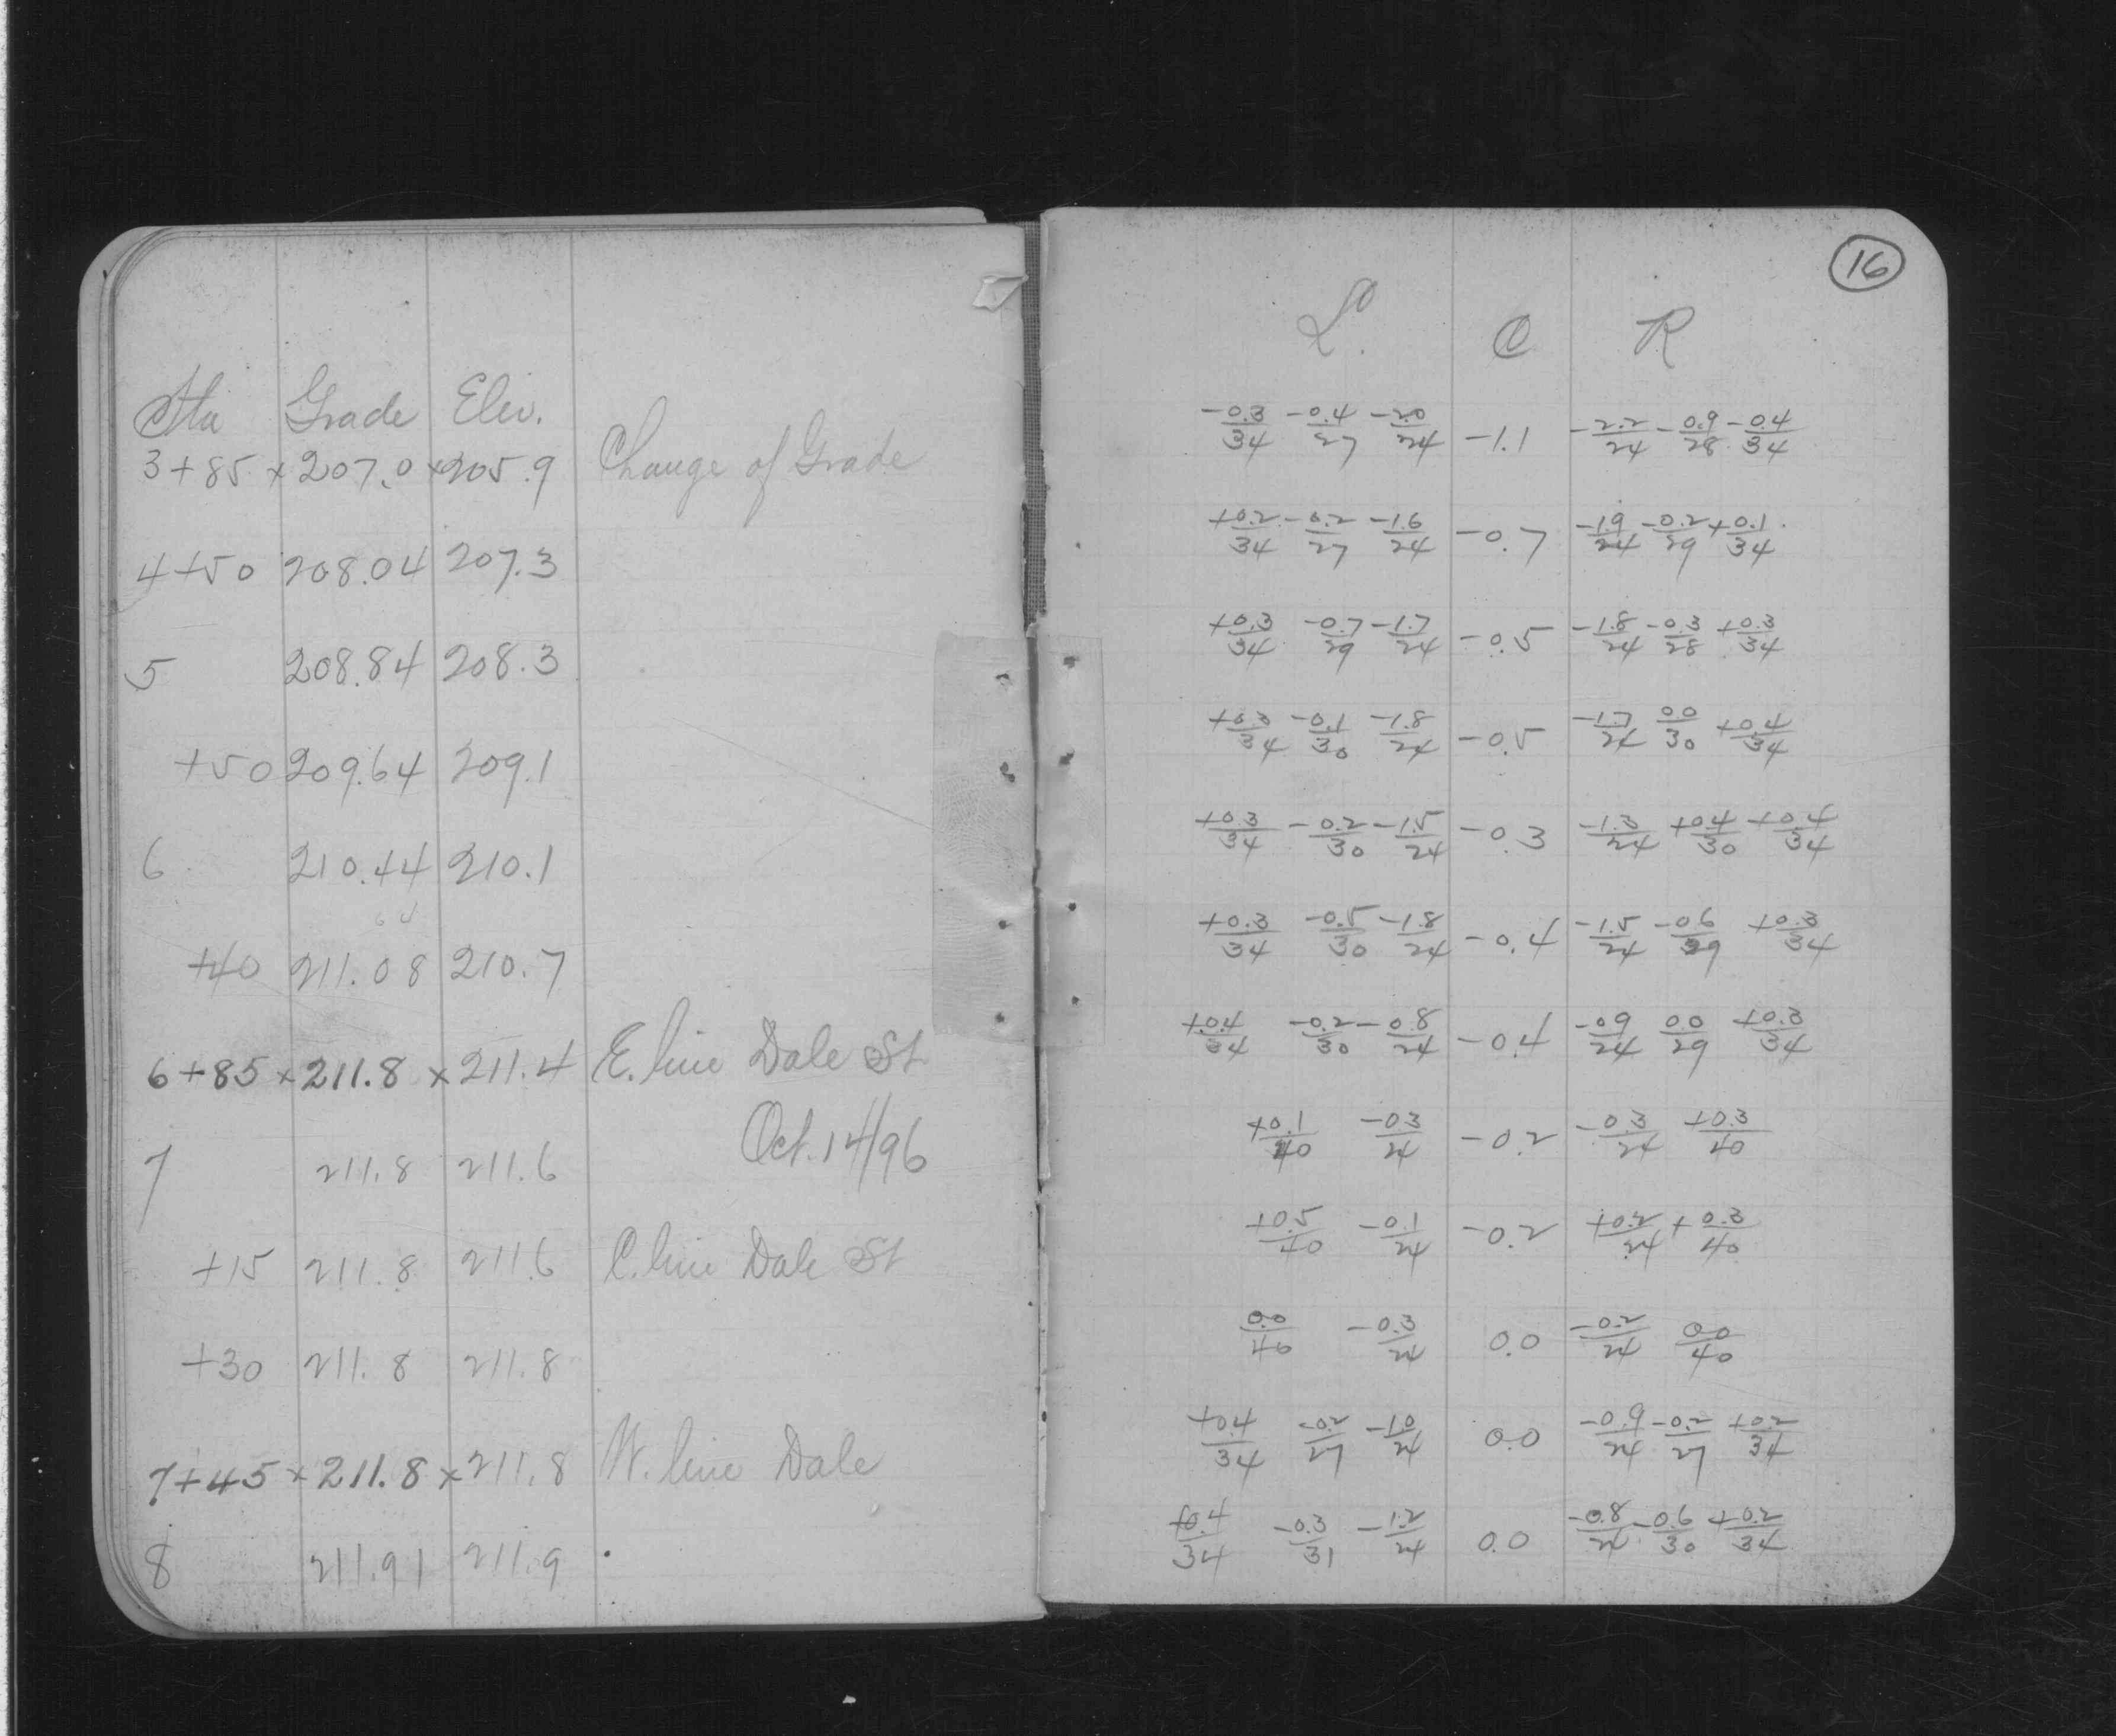 Sta Grade Elev.
3+85 x 207.0 x 205.9 Change of Grade
4+50 208.04 207.3
5 208.84 208.3
+50 209.64 209.1
6 210.44 210.1
64
+40 211.08 210.7
6+85 x 211.8 x 211.4 E. line Dale St
Oct. 14/96
7 211.8 211.6
+15 211.8 211.6 C. line Dale St
+30 211.8 211.8
7+45 x 211.8 x 211.8 W. line Dale
8 211.91 211.9
16
L C R
-0.3/34 -0.4/27 -2.0/24 -1.1 -2.2/24 -0.9/28 -0.4/34
+0.2/34 -0.2/27 -1.6/24 -0.7 -1.9/24 -0.2/29 +0.1/34
+0.3/34 -0.7/29 -1.7/24 -0.5 -1.8/24 -0.3/28 +0.3/34
+0.3/34 -0.1/30 -1.8/24 -0.5 -1.7/24 0.0/30 +0.4/34
+0.3/34 -0.2/30 -1.5/24 -0.3 -1.3/24 +0.4/30 +0.4/34
+0.3/34 -0.5/30 -1.8/24 -0.4 -1.5/24 -0.6/29 +0.3/34
+0.4/34 -0.2/30 -0.8/24 -0.4 -0.9/24 0.0/29 +0.3/34
+0.1/40 -0.3/24 -0.2 -0.3/24 +0.3/40
+0.5/40 -0.1/24 -0.2 +0.2/24 +0.3/40
0.0/40 -0.3/24 0.0 -0.2/24 0.0/40
+0.4/34 -0.2/27 -1.0/24 0.0 -0.9/24 -0.2/27 +0.2/34
+0.4/34 -0.3/31 -1.2/24 0.0 -0.8/24 -0.6/30 +0.2/34